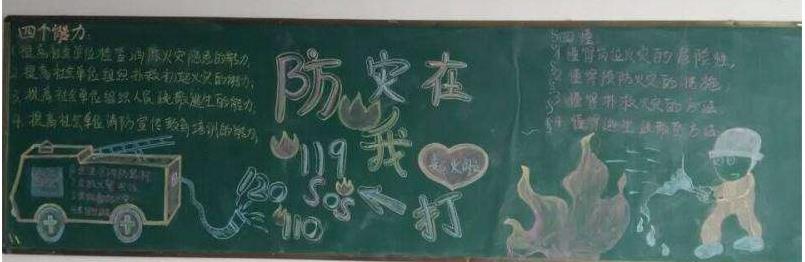 四个能力:
1. 提高社会单位检查消除火灾隐患的能力,
2. 提高社会单位组织扑救初起火灾的能力,
3. 提高社会单位组织人员疏散逃生的能力,
4. 提高社会单位消防宣传教育培训的能力,
防灾在
我
打
119
120
SOS
110
着火啦
四懂
1 懂得岗位火灾的危险性,
2 懂得预防火灾的措施,
3 懂得扑救火灾的方法
4 懂得逃生疏散的方法